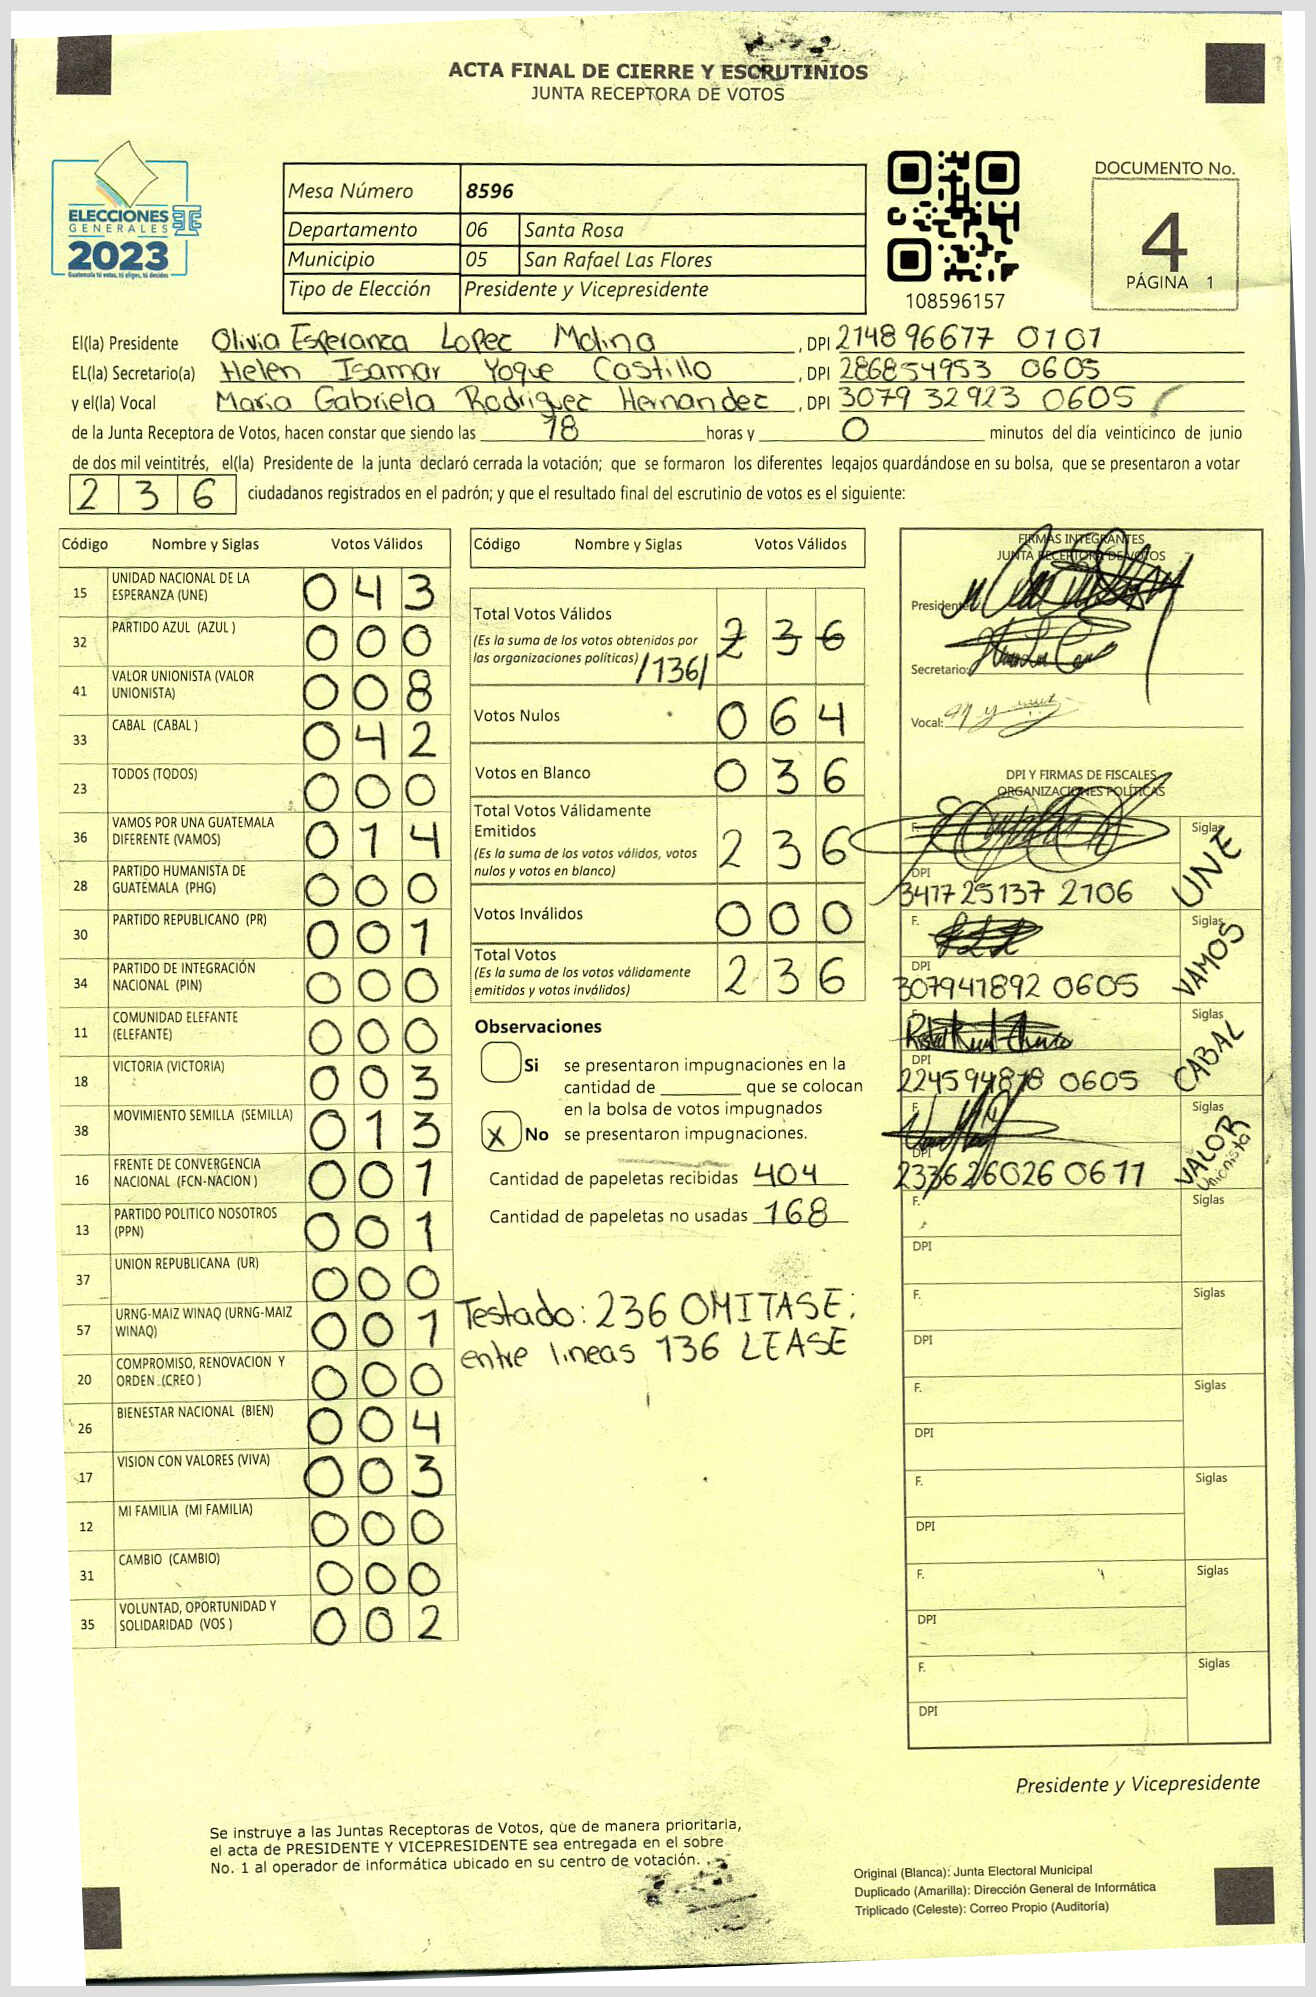 ACTA FINAL DE CIERRE Y ESCRUTINIOS
JUNTA RECEPTORA DE VOTOS
ELECCIONES
GENERALES
2023
Guatemala tú votas, tú eliges, tú decides
Mesa Número 8596
Departamento 06 Santa Rosa
Municipio 05 San Rafael Las Flores
Tipo de Elección Presidente y Vicepresidente
108596157
DOCUMENTO No.
4
PÁGINA 1
El(la) Presidente Olivia Esperanza Lopez Molina, DPI 2148 96677 0101
EL(la) Secretario(a) Helen Isamar Yoque Castillo, DPI 286854953 0605
y el(la) Vocal Maria Gabriela Rodriguez Hernandez, DPI 3079 32923 0605
de la Junta Receptora de Votos, hacen constar que siendo las 18 horas y 0 minutos del día veinticinco de junio
de dos mil veintitrés, el(la) Presidente de la junta declaró cerrada la votación; que se formaron los diferentes legajos guardándose en su bolsa, que se presentaron a votar
2 3 6 ciudadanos registrados en el padrón; y que el resultado final del escrutinio de votos es el siguiente:
Código Nombre y Siglas Votos Válidos
15 UNIDAD NACIONAL DE LA ESPERANZA (UNE) 0 4 3
32 PARTIDO AZUL (AZUL ) 0 0 0
41 VALOR UNIONISTA (VALOR UNIONISTA) 0 0 8
33 CABAL (CABAL ) 0 4 2
23 TODOS (TODOS) 0 0 0
36 VAMOS POR UNA GUATEMALA DIFERENTE (VAMOS) 0 1 4
28 PARTIDO HUMANISTA DE GUATEMALA (PHG) 0 0 0
30 PARTIDO REPUBLICANO (PR) 0 0 1
34 PARTIDO DE INTEGRACIÓN NACIONAL (PIN) 0 0 0
11 COMUNIDAD ELEFANTE (ELEFANTE) 0 0 0
18 VICTORIA (VICTORIA) 0 0 3
38 MOVIMIENTO SEMILLA (SEMILLA) 0 1 3
16 FRENTE DE CONVERGENCIA NACIONAL (FCN-NACION ) 0 0 1
13 PARTIDO POLITICO NOSOTROS (PPN) 0 0 1
37 UNION REPUBLICANA (UR) 0 0 0
57 URNG-MAIZ WINAQ (URNG-MAIZ WINAQ) 0 0 1
20 COMPROMISO, RENOVACION Y ORDEN (CREO ) 0 0 0
26 BIENESTAR NACIONAL (BIEN) 0 0 4
17 VISION CON VALORES (VIVA) 0 0 3
12 MI FAMILIA (MI FAMILIA) 0 0 0
31 CAMBIO (CAMBIO) 0 0 0
35 VOLUNTAD, OPORTUNIDAD Y SOLIDARIDAD (VOS ) 0 0 2
Código Nombre y Siglas Votos Válidos
Total Votos Válidos 2 3 6
(Es la suma de los votos obtenidos por
las organizaciones políticas) /136/
Votos Nulos 0 6 4
Votos en Blanco 0 3 6
Total Votos Válidamente
Emitidos 2 3 6
(Es la suma de los votos válidos, votos
nulos y votos en blanco)
Votos Inválidos 0 0 0
Total Votos 2 3 6
(Es la suma de los votos válidamente
emitidos y votos inválidos)
Observaciones
Si se presentaron impugnaciones en la
cantidad de ________ que se colocan
en la bolsa de votos impugnados
X No se presentaron impugnaciones.
Cantidad de papeletas recibidas 404
Cantidad de papeletas no usadas 168
Testado: 236 OMITASE:
entre lineas 136 LEASE
FIRMAS INTEGRANTES
JUNTA RECEPTORA DE VOTOS
Presidente:
Secretario:
Vocal:
DPI Y FIRMAS DE FISCALES
ORGANIZACIONES POLÍTICAS
F. Siglas UNE
DPI 3417 25137 2106
F. Siglas VAMOS
DPI 307941892 0605
F. Siglas CABAL
DPI 224594818 0605
F. Siglas VALOR Unionista
DPI 233626026 0611
F. Siglas
DPI
F. Siglas
DPI
F. Siglas
DPI
F. Siglas
DPI
F. Siglas
DPI
F. Siglas
DPI
Presidente y Vicepresidente
Se instruye a las Juntas Receptoras de Votos, que de manera prioritaria,
el acta de PRESIDENTE Y VICEPRESIDENTE sea entregada en el sobre
No. 1 al operador de informática ubicado en su centro de votación.
Original (Blanca): Junta Electoral Municipal
Duplicado (Amarilla): Dirección General de Informática
Triplicado (Celeste): Correo Propio (Auditoría)